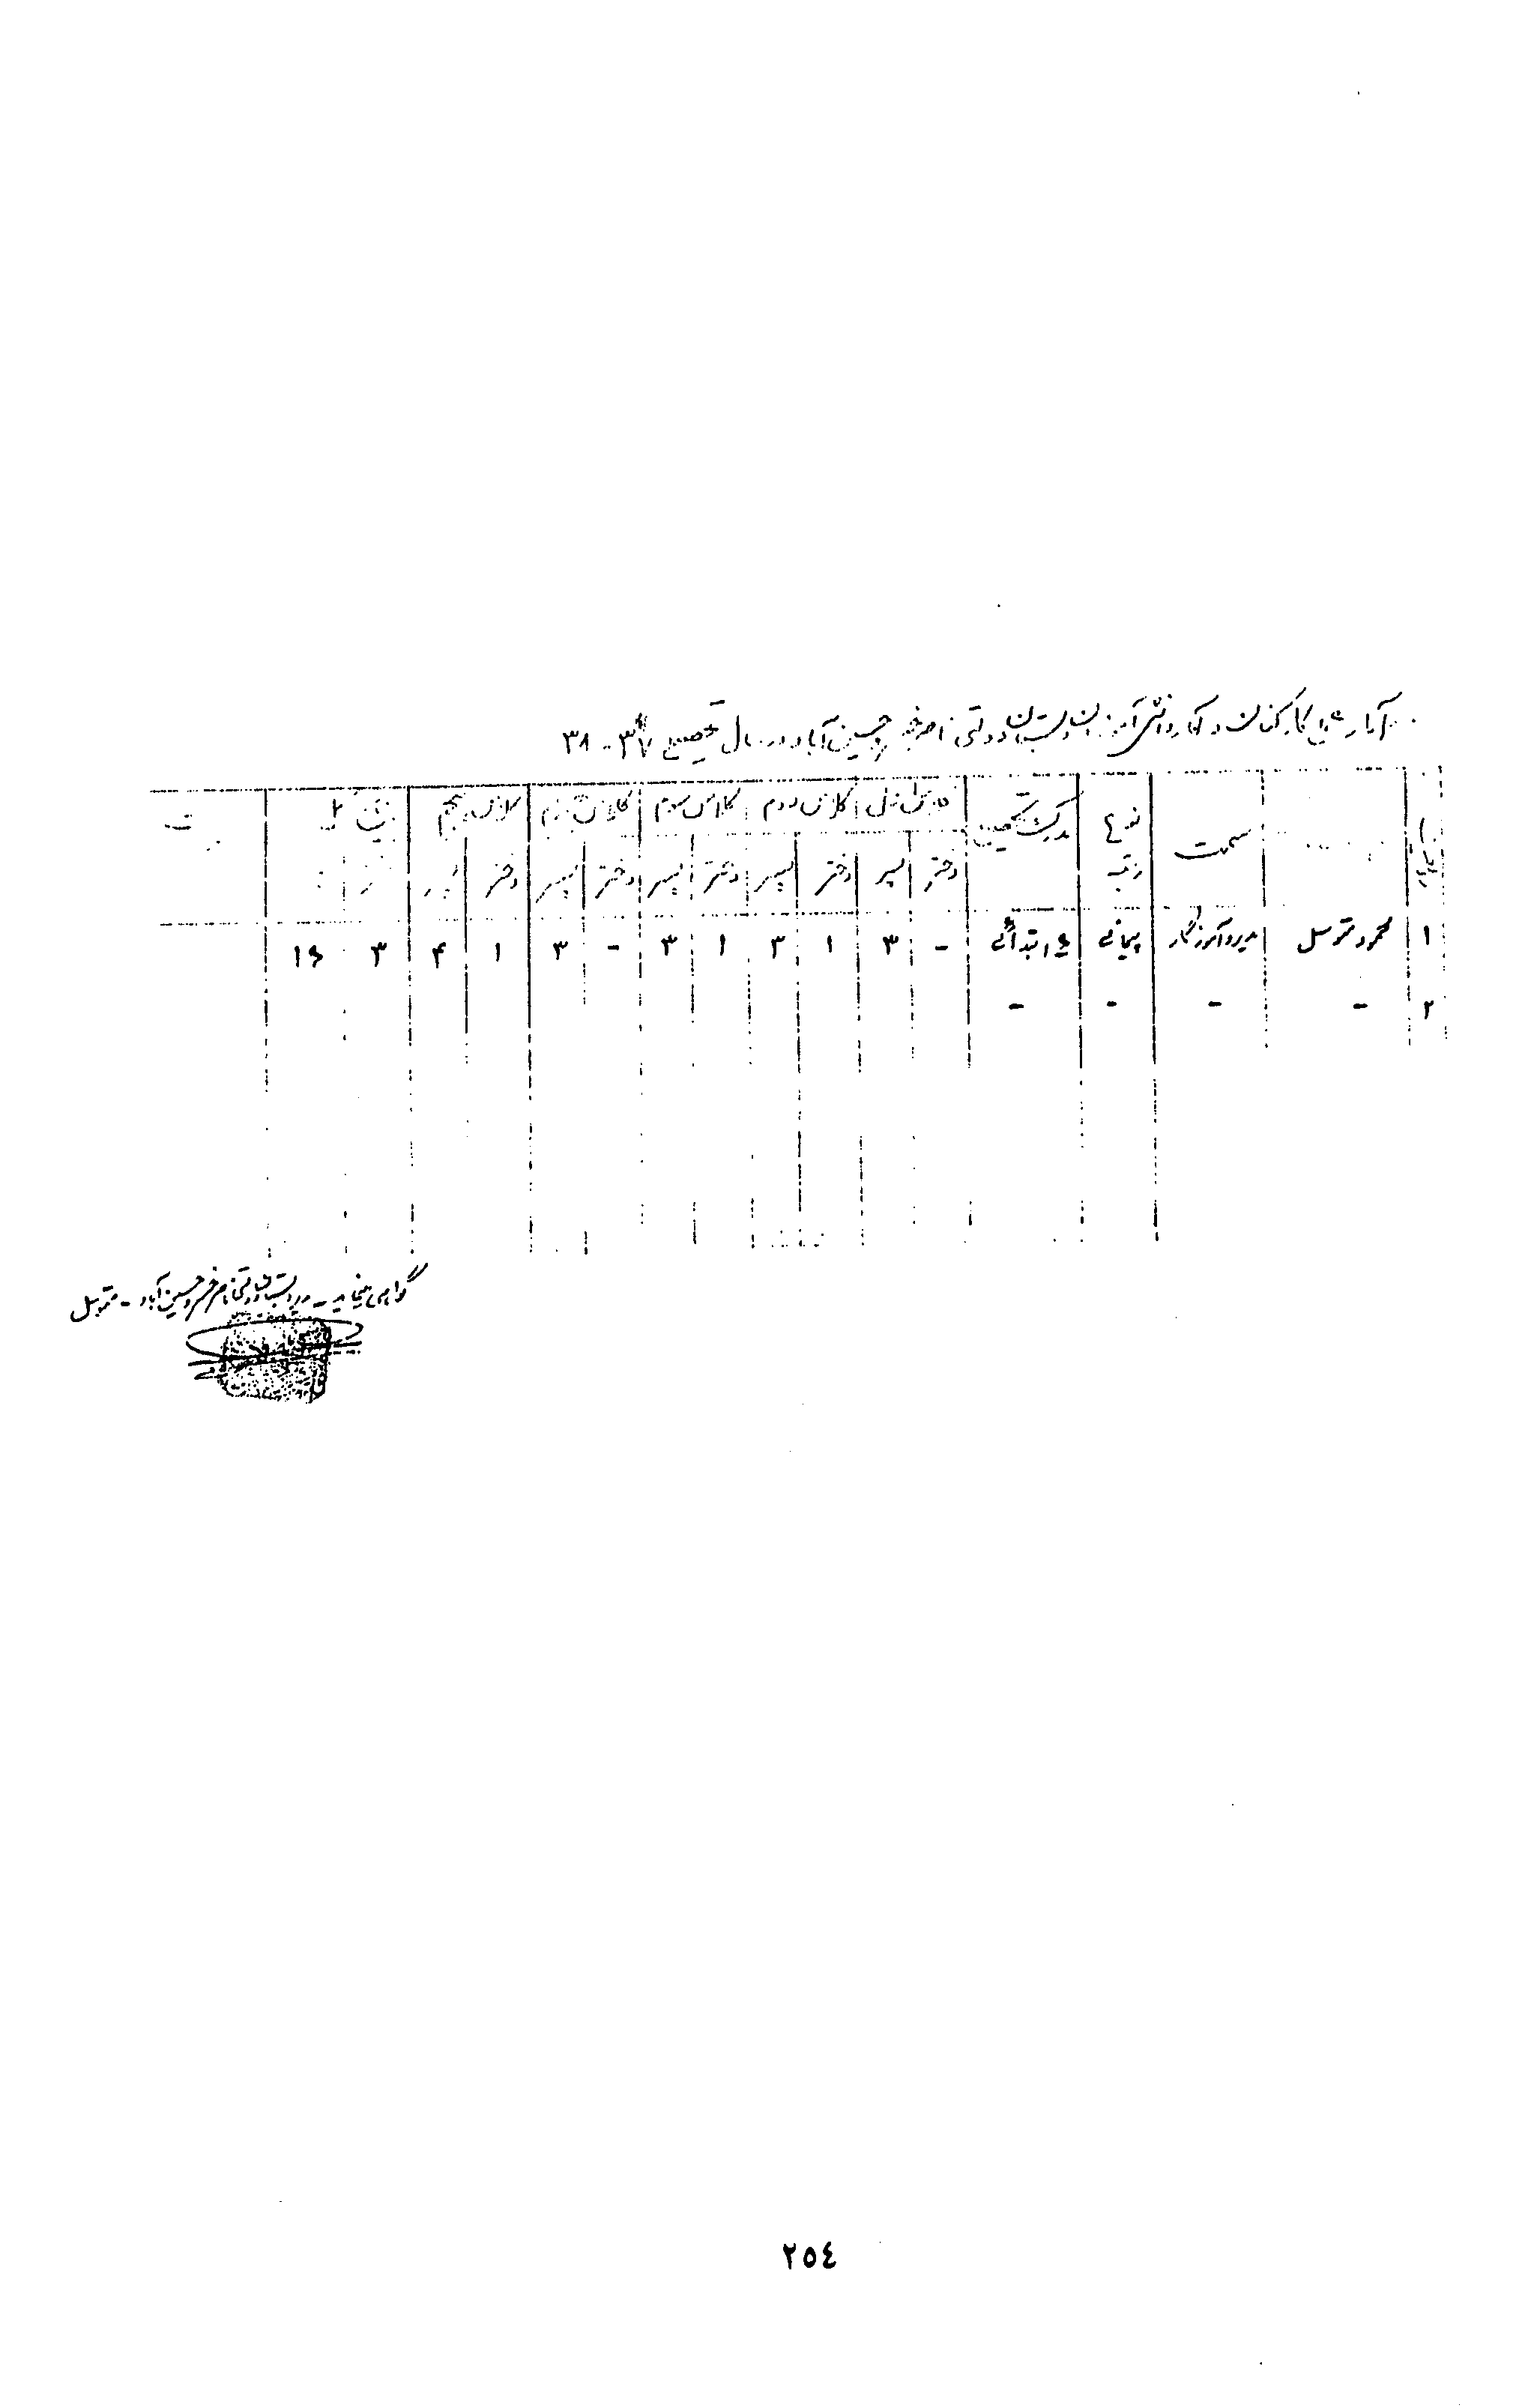 آمار کارکنان و آمار دانش آموزان دبستان دولتی ناصر خسرو حسین آباد در سال تحصیلی ۳۷ - ۳۸
سمت نوع رتبه مدرک تحصیلی کلاس اول کلاس دوم کلاس سوم کلاس چهارم کلاس پنجم
دختر پسر دختر پسر دختر پسر دختر پسر دختر پسر
۱ محمود توسل مدیر و آموزگار پیمانی ۶ ابتدائی - ۳ ۱ ۳ ۱ ۳ - ۳ ۱ ۴ ۳ ۱۶
۲ - - - -
گواهی مینماید - مدیر دبستان دولتی ناصر خسرو حسین آباد - توسل
٢٥٤